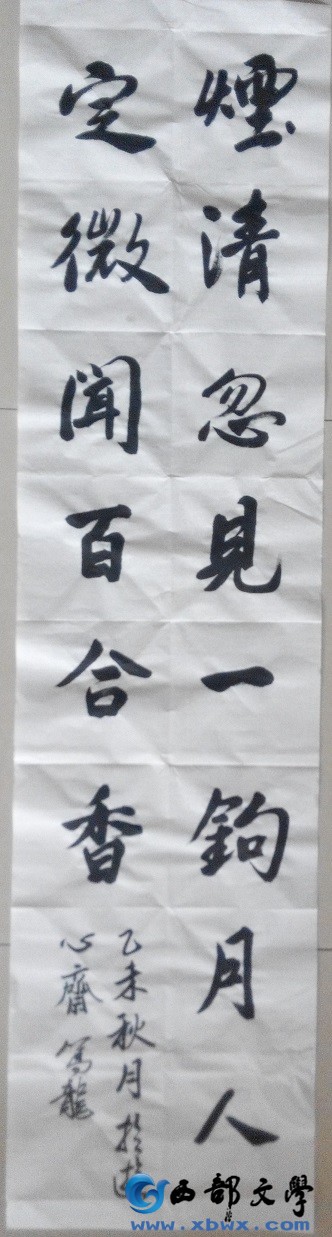 煙清忽見一鉤月人
定微聞百合香
乙未秋月於游
心齋 篤龍
西部文學
www.xbwx.com